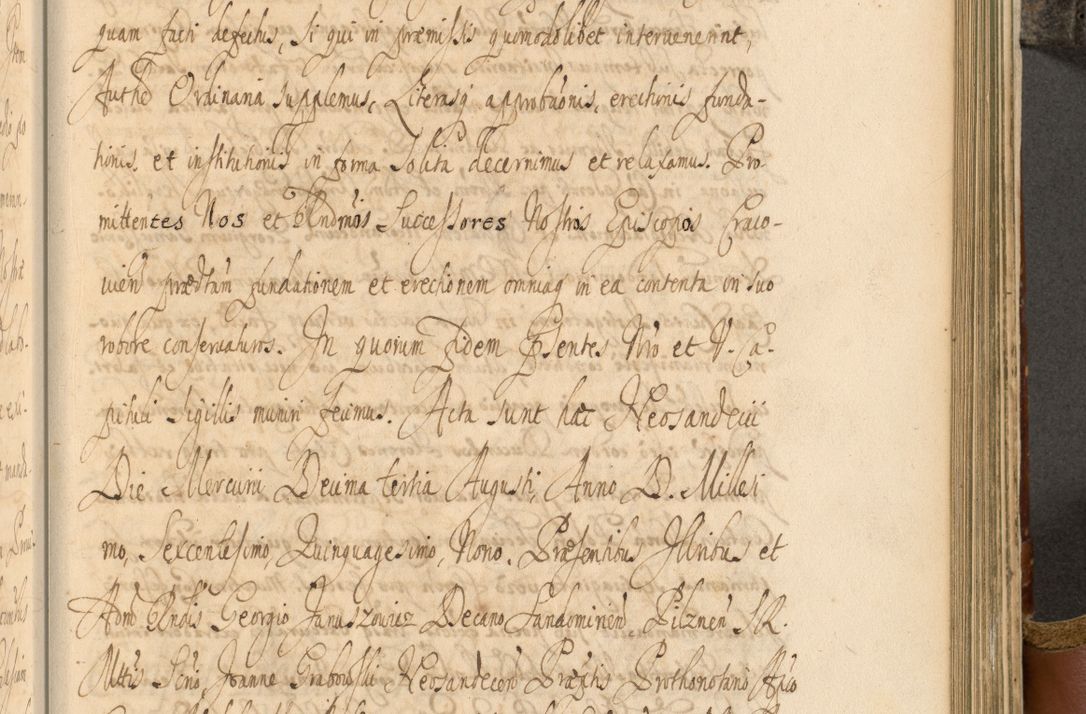 quam facti defectus, si qui in præmissis quomodolibet intervenerint,
Authe Ordinaria supplemus, Literasq approbaonis, erectionis funda-
tionis et institutionis in forma solita decernimus et relaxamus. Pro
mittentes Nos et Rndmos Successores Nostros Episcopos Craco-
vien prædtam fundationem et erectionem omniaq in ea contenta in suo
robore conservaturos. In quorum fidem psentes Nro et V. Ca-
pituli Sigillis muniri fecimus. Acta sunt hæc Neosandecii
Die Mercurii Decima tertia Augusti, Anno D. Millesi
mo, Sexcentesimo, Quinquagesimo, Nono. Præsentibus Illribus et
Adm Rndis Georgio Januszowicz Decano Sandomirien Pilznen S.R.
Mttis Scrio, Joanne Grabowski Neosandecen Præptis Prothonotario Aplico